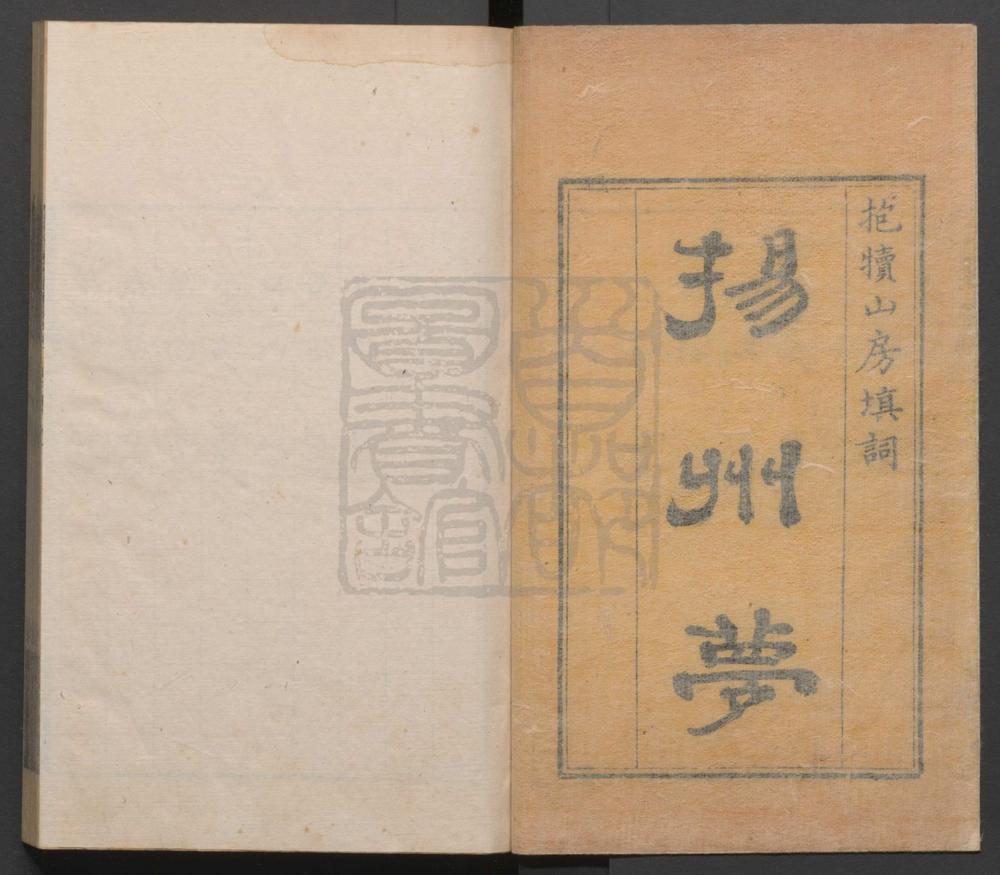 抱犢山房填詞
揚州夢